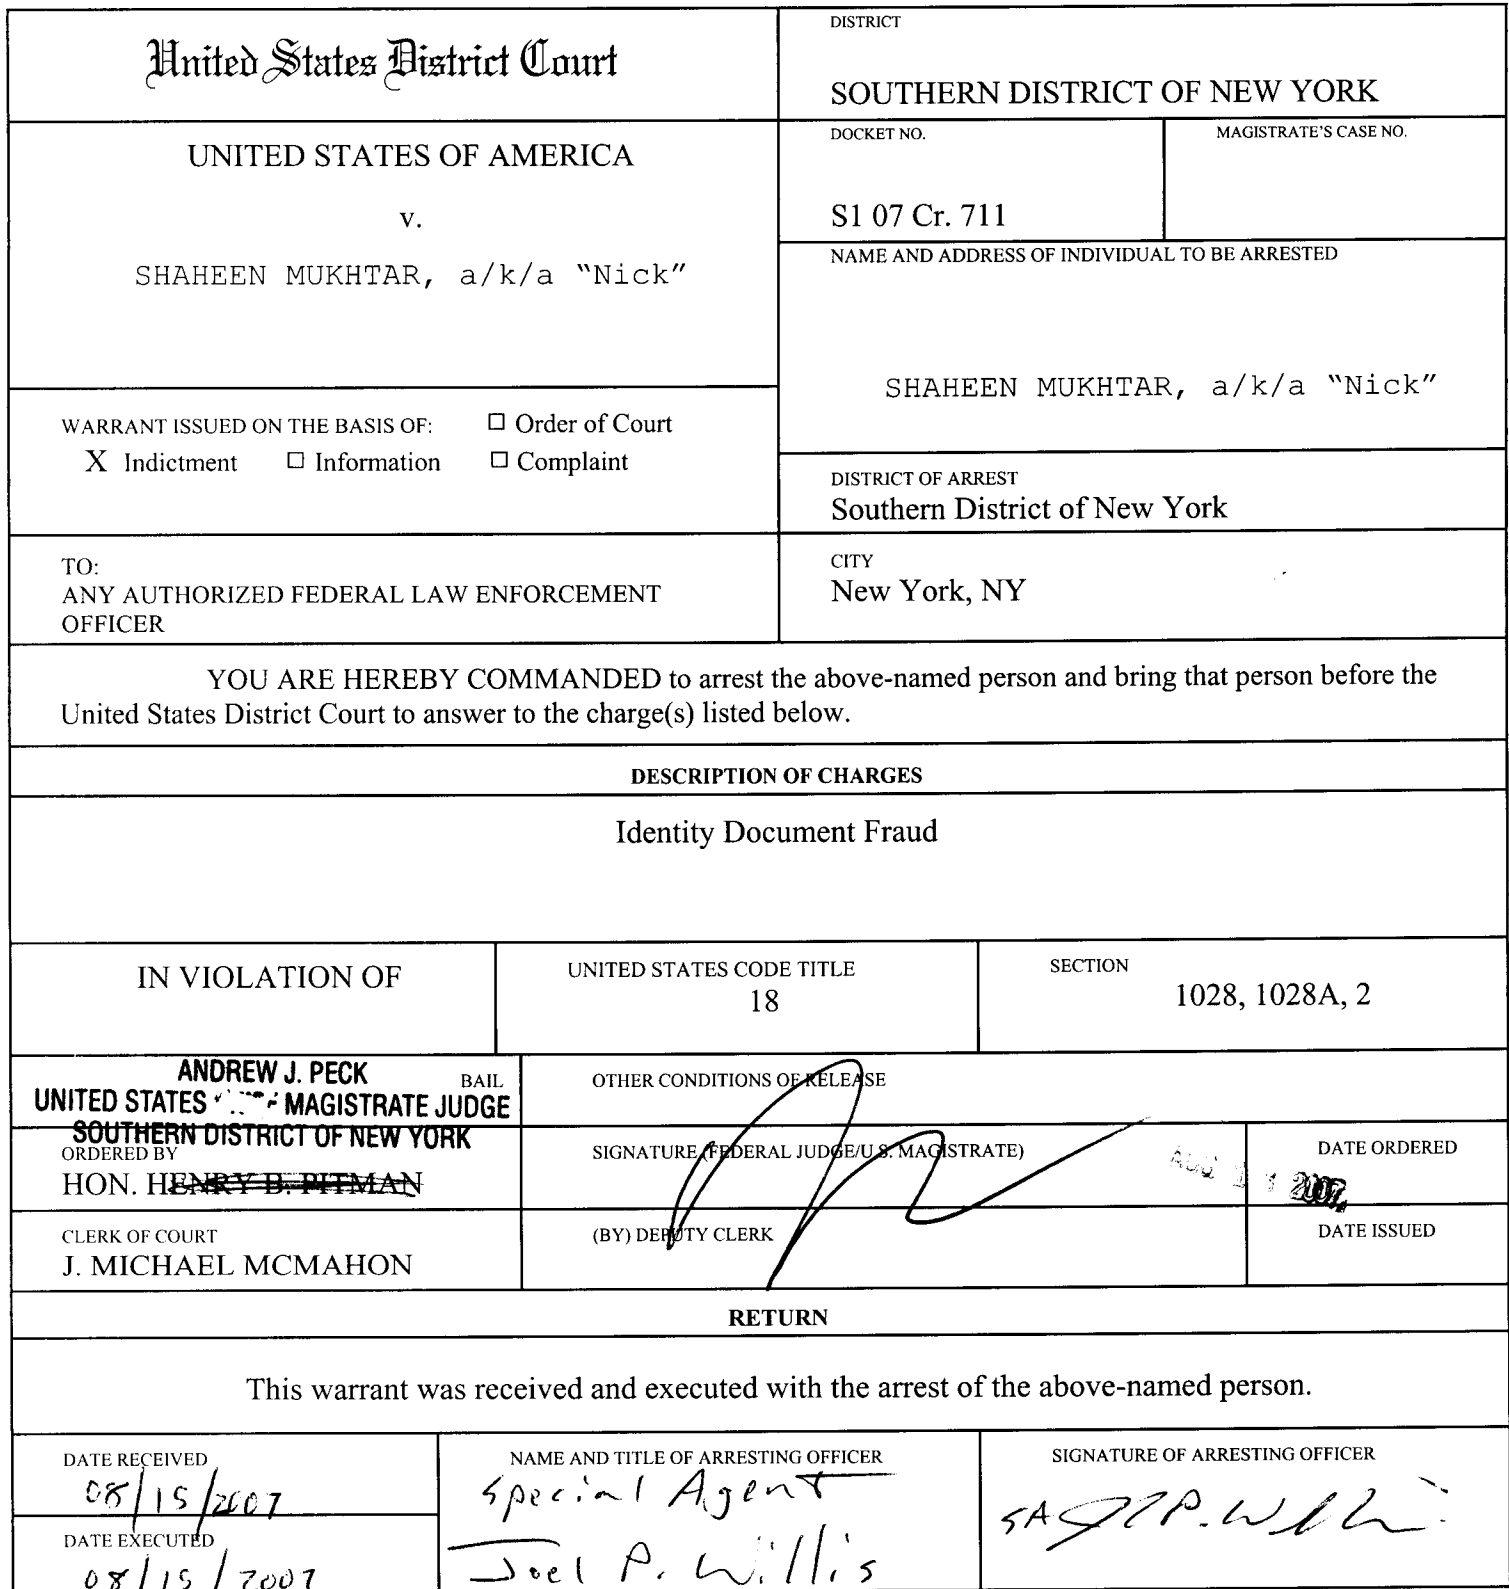 United States District Court
DISTRICT
SOUTHERN DISTRICT OF NEW YORK
UNITED STATES OF AMERICA
v.
SHAHEEN MUKHTAR, a/k/a “Nick”
DOCKET NO.
S1 07 Cr. 711
MAGISTRATE'S CASE NO.
NAME AND ADDRESS OF INDIVIDUAL TO BE ARRESTED
SHAHEEN MUKHTAR, a/k/a “Nick”
WARRANT ISSUED ON THE BASIS OF: □ Order of Court
X Indictment □ Information □ Complaint
DISTRICT OF ARREST
Southern District of New York
TO:
ANY AUTHORIZED FEDERAL LAW ENFORCEMENT
OFFICER
CITY
New York, NY
YOU ARE HEREBY COMMANDED to arrest the above-named person and bring that person before the
United States District Court to answer to the charge(s) listed below.
DESCRIPTION OF CHARGES
Identity Document Fraud
IN VIOLATION OF
UNITED STATES CODE TITLE
18
SECTION
1028, 1028A, 2
ANDREW J. PECK
UNITED STATES MAGISTRATE JUDGE
SOUTHERN DISTRICT OF NEW YORK
BAIL
OTHER CONDITIONS OF RELEASE
ORDERED BY
HON. HENRY B. PITMAN
SIGNATURE (FEDERAL JUDGE/U.S. MAGISTRATE)
AUG 2007
DATE ORDERED
CLERK OF COURT
J. MICHAEL MCMAHON
(BY) DEPUTY CLERK
DATE ISSUED
RETURN
This warrant was received and executed with the arrest of the above-named person.
DATE RECEIVED
08/15/2007
DATE EXECUTED
08/15/2007
NAME AND TITLE OF ARRESTING OFFICER
Special Agent
Joel P. Willis
SIGNATURE OF ARRESTING OFFICER
SA